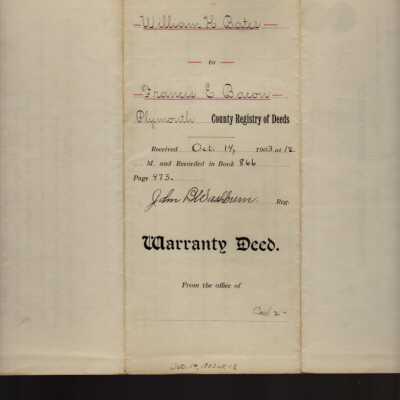 William H. Bates
to
Francis E. Bacon
Plymouth County Registry of Deeds
Received Oct. 14, 1903 at 12
M. and Recorded in Book 866
Page 473.
John B Washburn. Reg.
Warranty Deed.
From the office of
Oct. 14, 1903 at 12